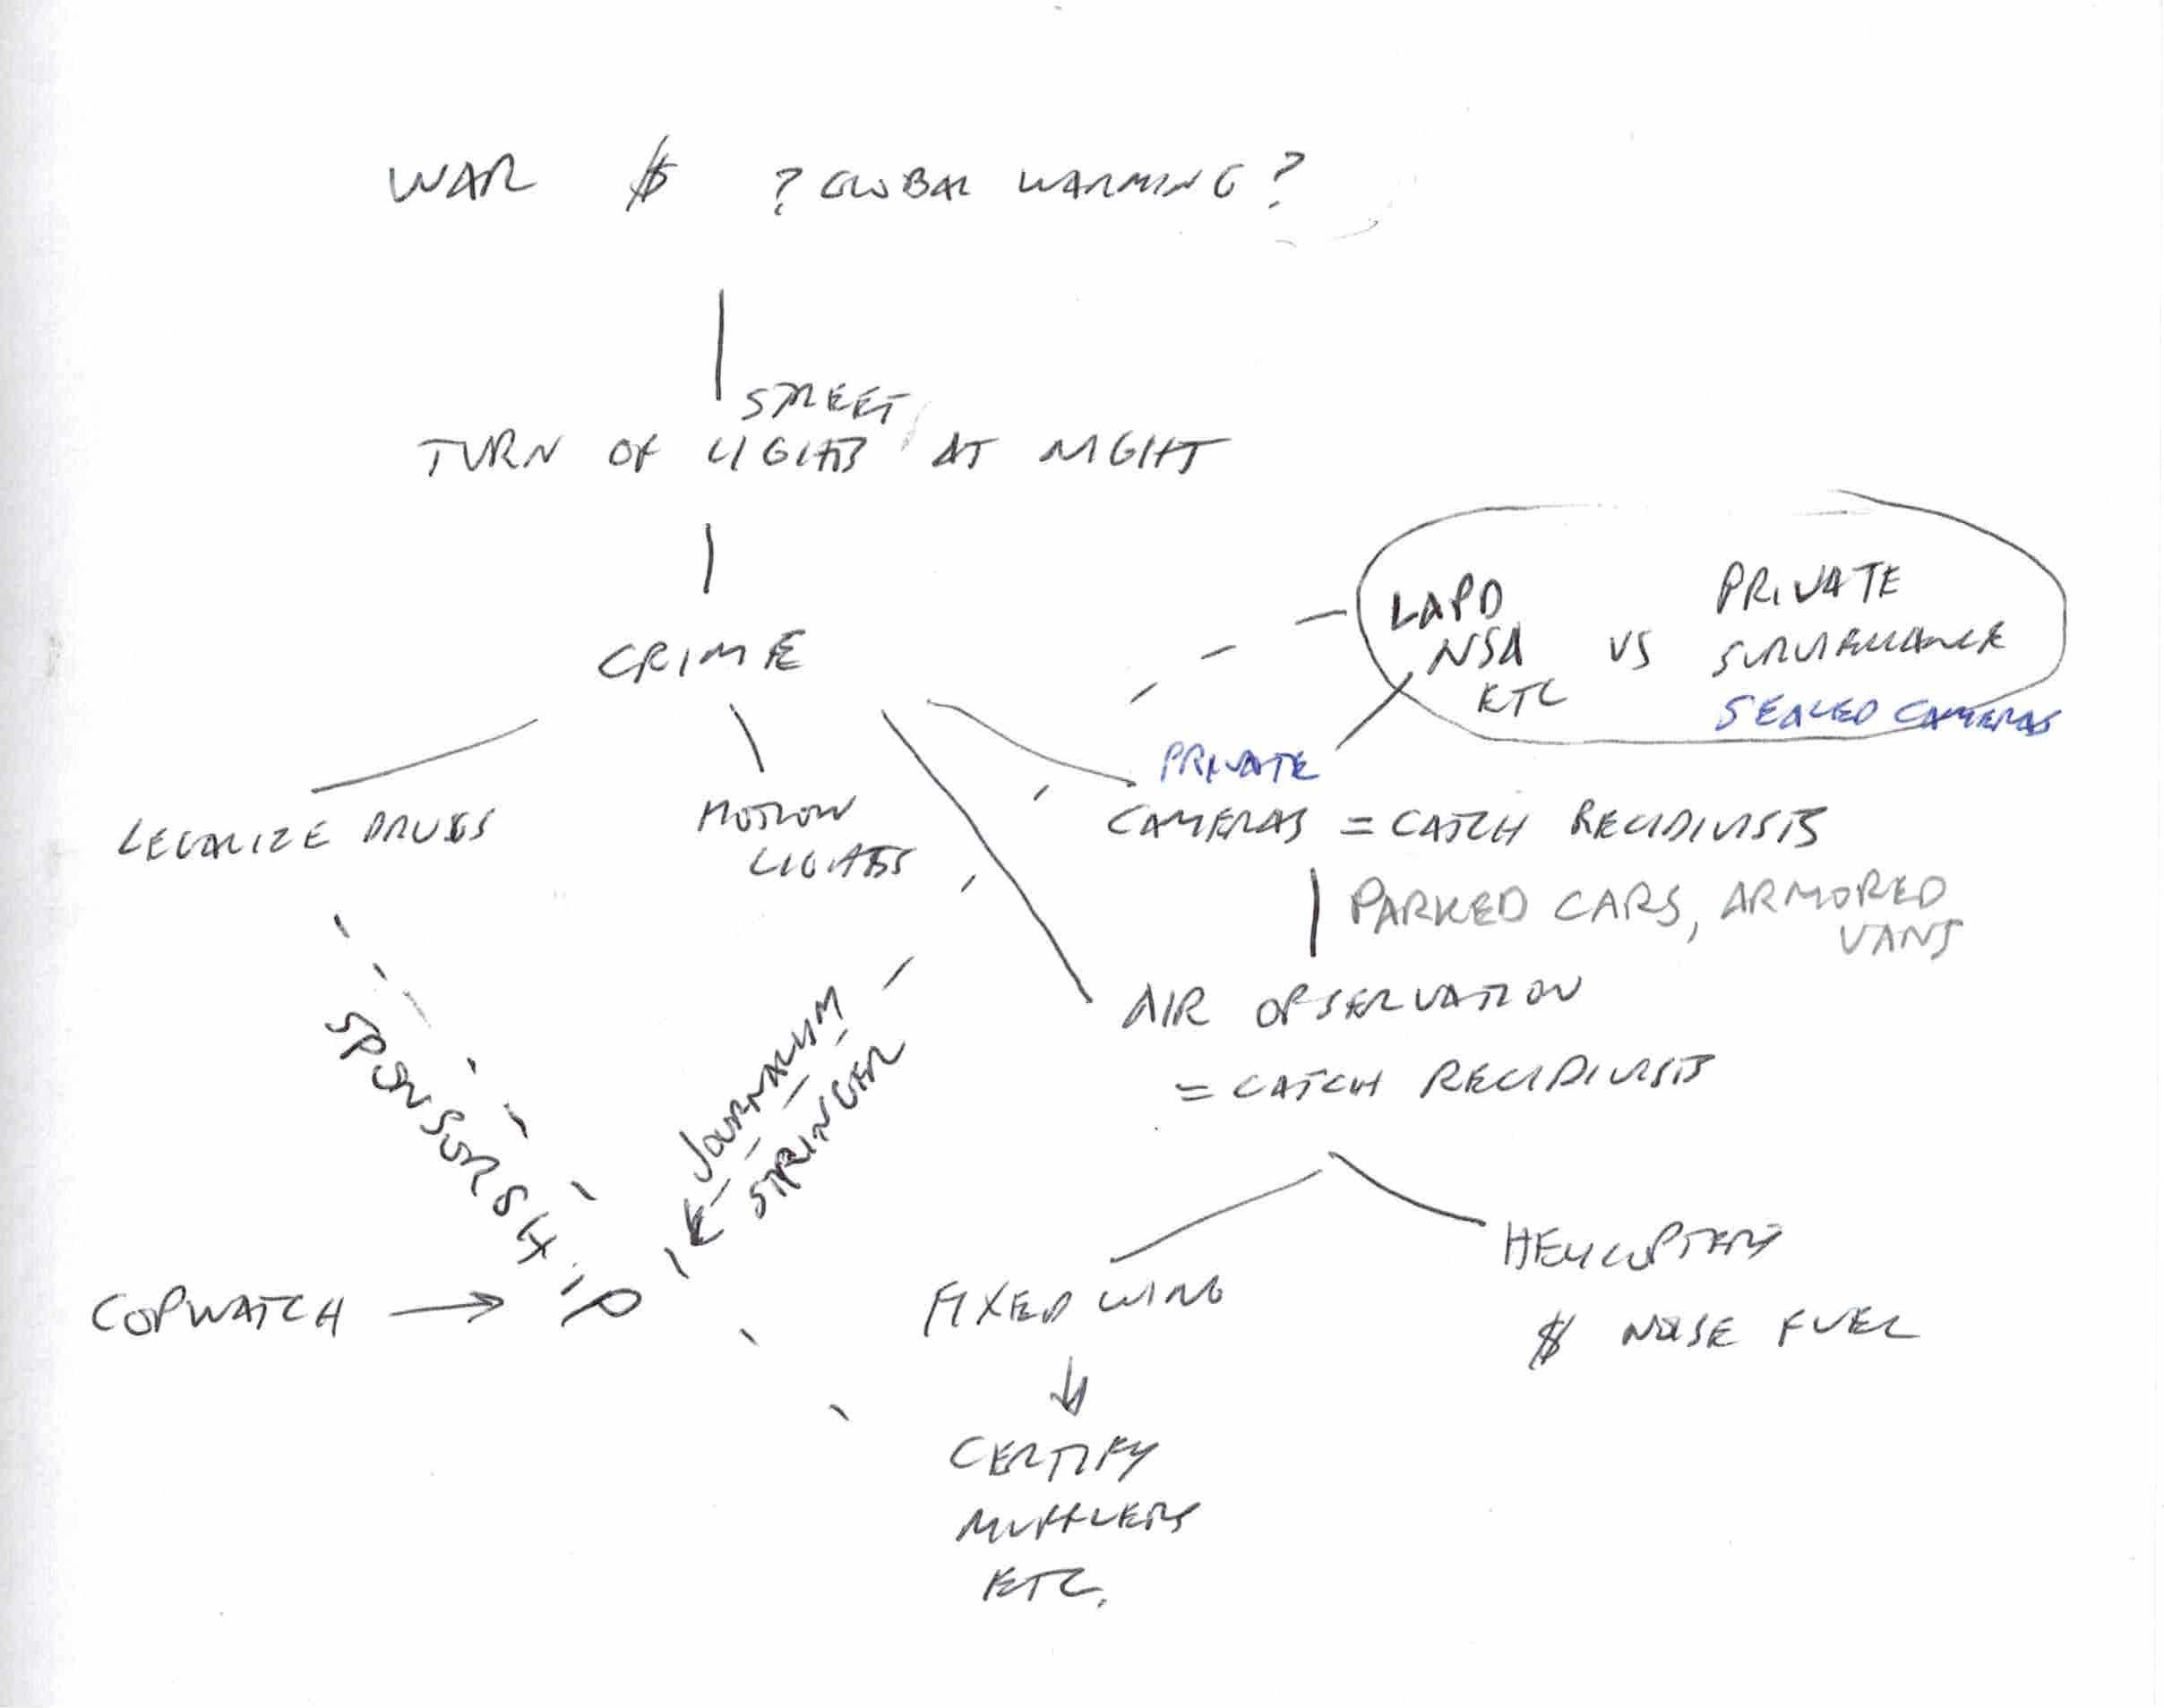 WAR $ ? GLOBAL WARMING ?
STREET
TURN OF LIGHTS AT NIGHT
CRIME
LAPD
NSA
ETC
VS
PRIVATE
SURVIELLANCE
SEALED CAMERAS
LEGALIZE DRUGS
MOTION
LIGHTS
PRIVATE
CAMERAS = CATCH RECIDIVISTS
PARKED CARS, ARMORED
VANS
AIR OBSERVATION
= CATCH RECIDIVISTS
SPONSORSHIP
JOURNALISM
STRINGER
COPWATCH →
FIXED WING
HELICOPTERS
$ NOISE FUEL
CERTIFY
MUFFLERS
ETC.